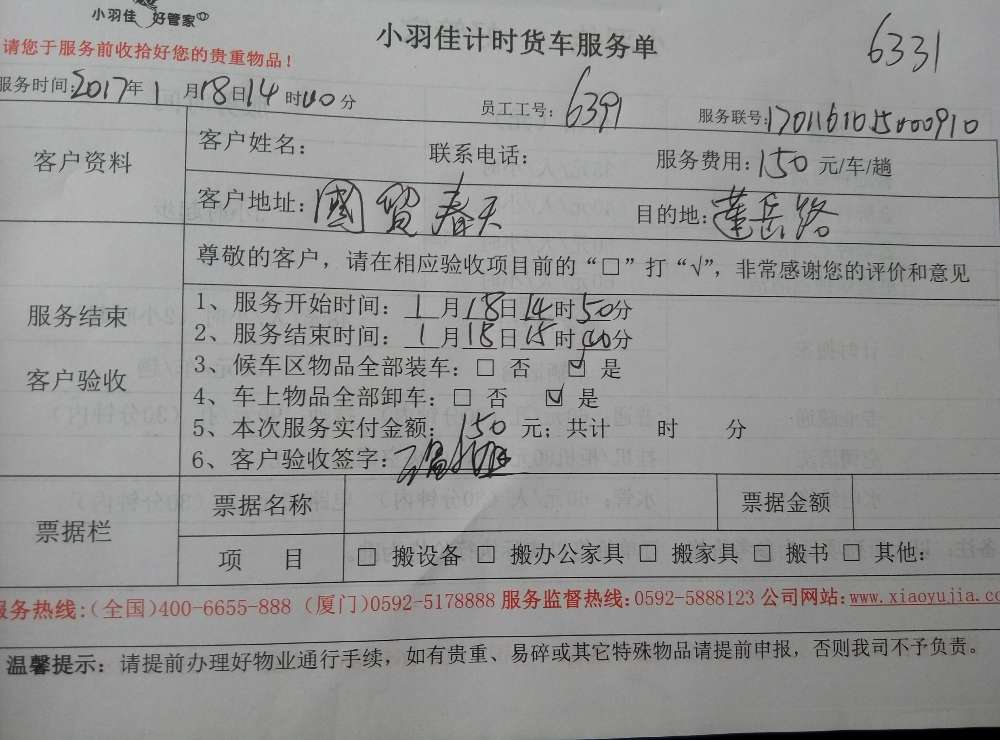 小羽佳 好管家
小羽佳计时货车服务单
6331
请您于服务前收拾好您的贵重物品！
服务时间：2017年1月18日14时40分 员工工号：6391 服务联号：1701161015000910
客户资料
客户姓名： 联系电话： 服务费用：150元/车/趟
客户地址：國贸春天 目的地：莲岳路
服务结束
客户验收
尊敬的客户，请在相应验收项目前的“□”打“√”，非常感谢您的评价和意见
1、服务开始时间：1月18日14时50分
2、服务结束时间：1月18日15时40分
3、候车区物品全部装车：□ 否 ☑ 是
4、车上物品全部卸车：□ 否 ☑ 是
5、本次服务实付金额：150元；共计 时 分
6、客户验收签字：
票据栏
票据名称 票据金额
项 目 □ 搬设备 □ 搬办公家具 □ 搬家具 □ 搬书 □ 其他：
服务热线：（全国）400-6655-888（厦门）0592-5178888 服务监督热线：0592-5888123 公司网站：www.xiaoyujia.co
温馨提示：请提前办理好物业通行手续，如有贵重、易碎或其它特殊物品请提前申报，否则我司不予负责。